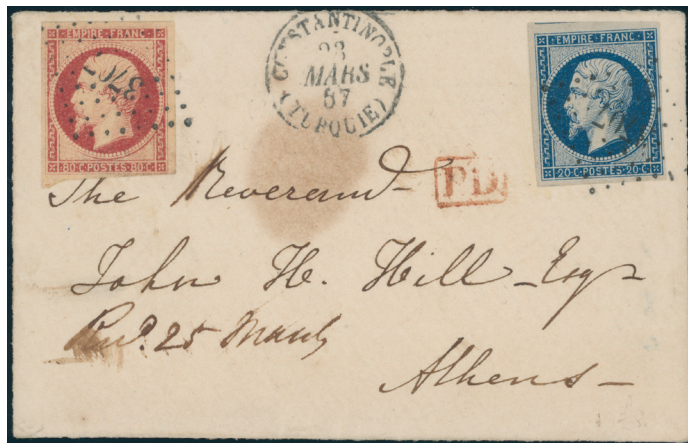 EMPIRE FRANC.
3707
80·C·POSTES·80·C·
CONSTANTINOPLE
23
MARS
57
(TURQUIE)
EMPIRE FRANC.
20·C·POSTES·20·C·
PD
The Reverend
John H. Hill Esqr
25 March
Athens